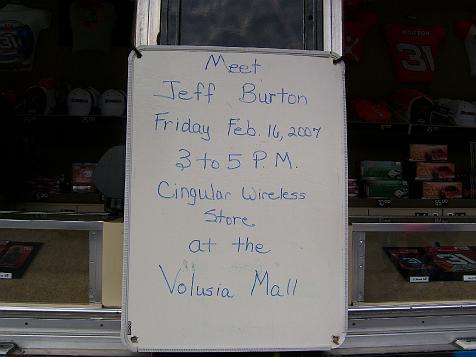 Meet
Jeff Burton
Friday Feb. 16, 2007
3 to 5 P.M.
Cingular Wireless
Store
at the
Volusia Mall
31
31